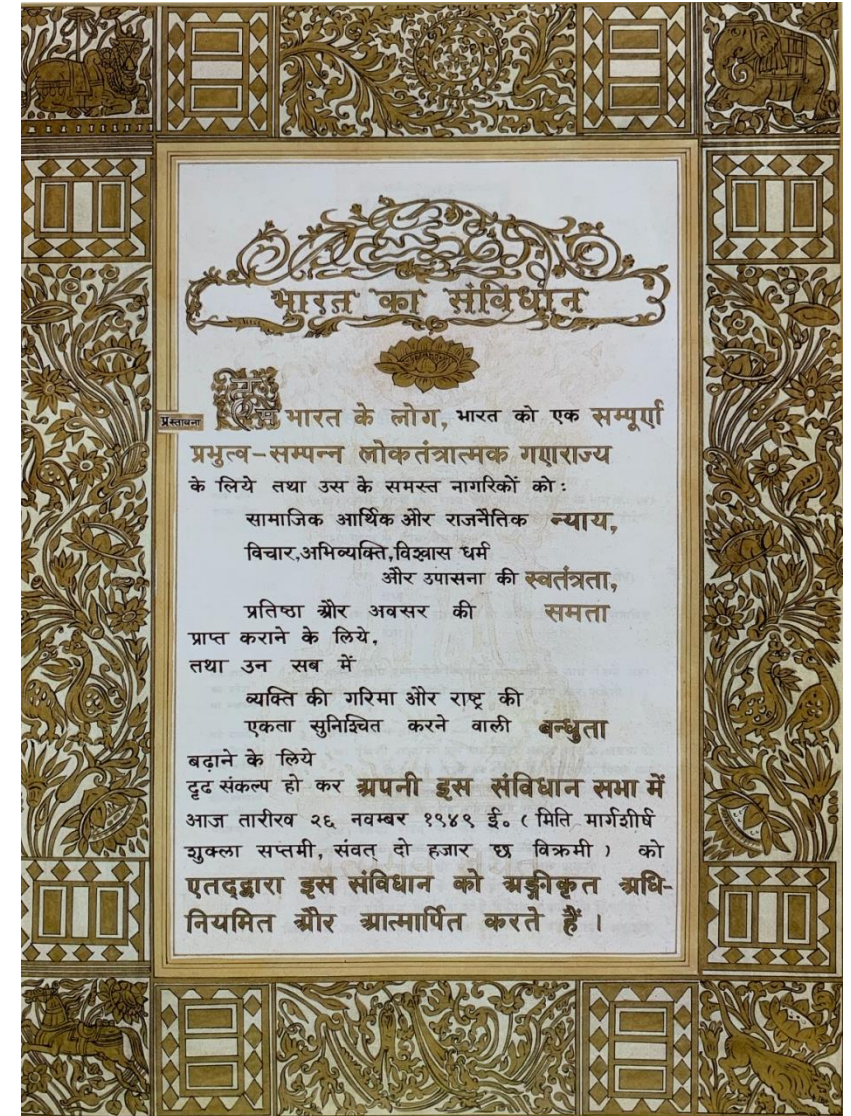 भारत का संविधान
प्रस्तावना
हम भारत के लोग, भारत को एक सम्पूर्ण
प्रभुत्व-सम्पन्न लोकतंत्रात्मक गणराज्य
के लिये तथा उस के समस्त नागरिकों को:
सामाजिक आर्थिक और राजनैतिक न्याय,
विचार,अभिव्यक्ति,विश्वास धर्म
और उपासना की स्वतंत्रता,
प्रतिष्ठा और अवसर की समता
प्राप्त कराने के लिये,
तथा उन सब में
व्यक्ति की गरिमा और राष्ट्र की
एकता सुनिश्चित करने वाली बन्धुता
बढ़ाने के लिये
दृढ संकल्प हो कर अपनी इस संविधान सभा में
आज तारीख २६ नवम्बर १९४९ ई० ( मिति मार्गशीर्ष
शुक्ला सप्तमी, संवत् दो हजार छ विक्रमी ) को
एतद्द्वारा इस संविधान को अङ्गीकृत अधि-
नियमित और आत्मार्पित करते हैं ।